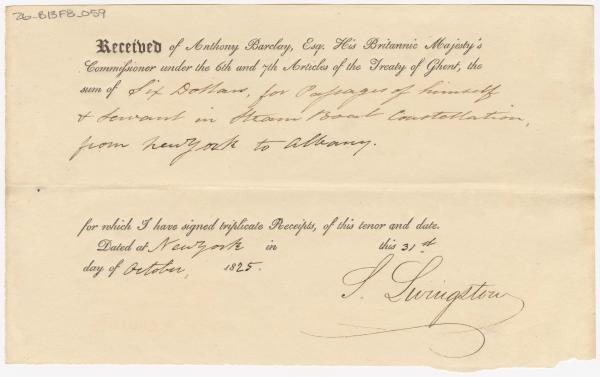 26-B13F8-059
Received of Anthony Barclay, Esq. His Britannic Majesty's
Commissioner under the 6th and 7th Articles of the Treaty of Ghent, the
sum of Six Dollars, for Passages of himself
& Servant in Steam Boat Constellation,
from New York to Albany.
for which I have signed triplicate Receipts, of this tenor and date.
Dated at New York in this 31st
day of October, 1825.
S. Livingston